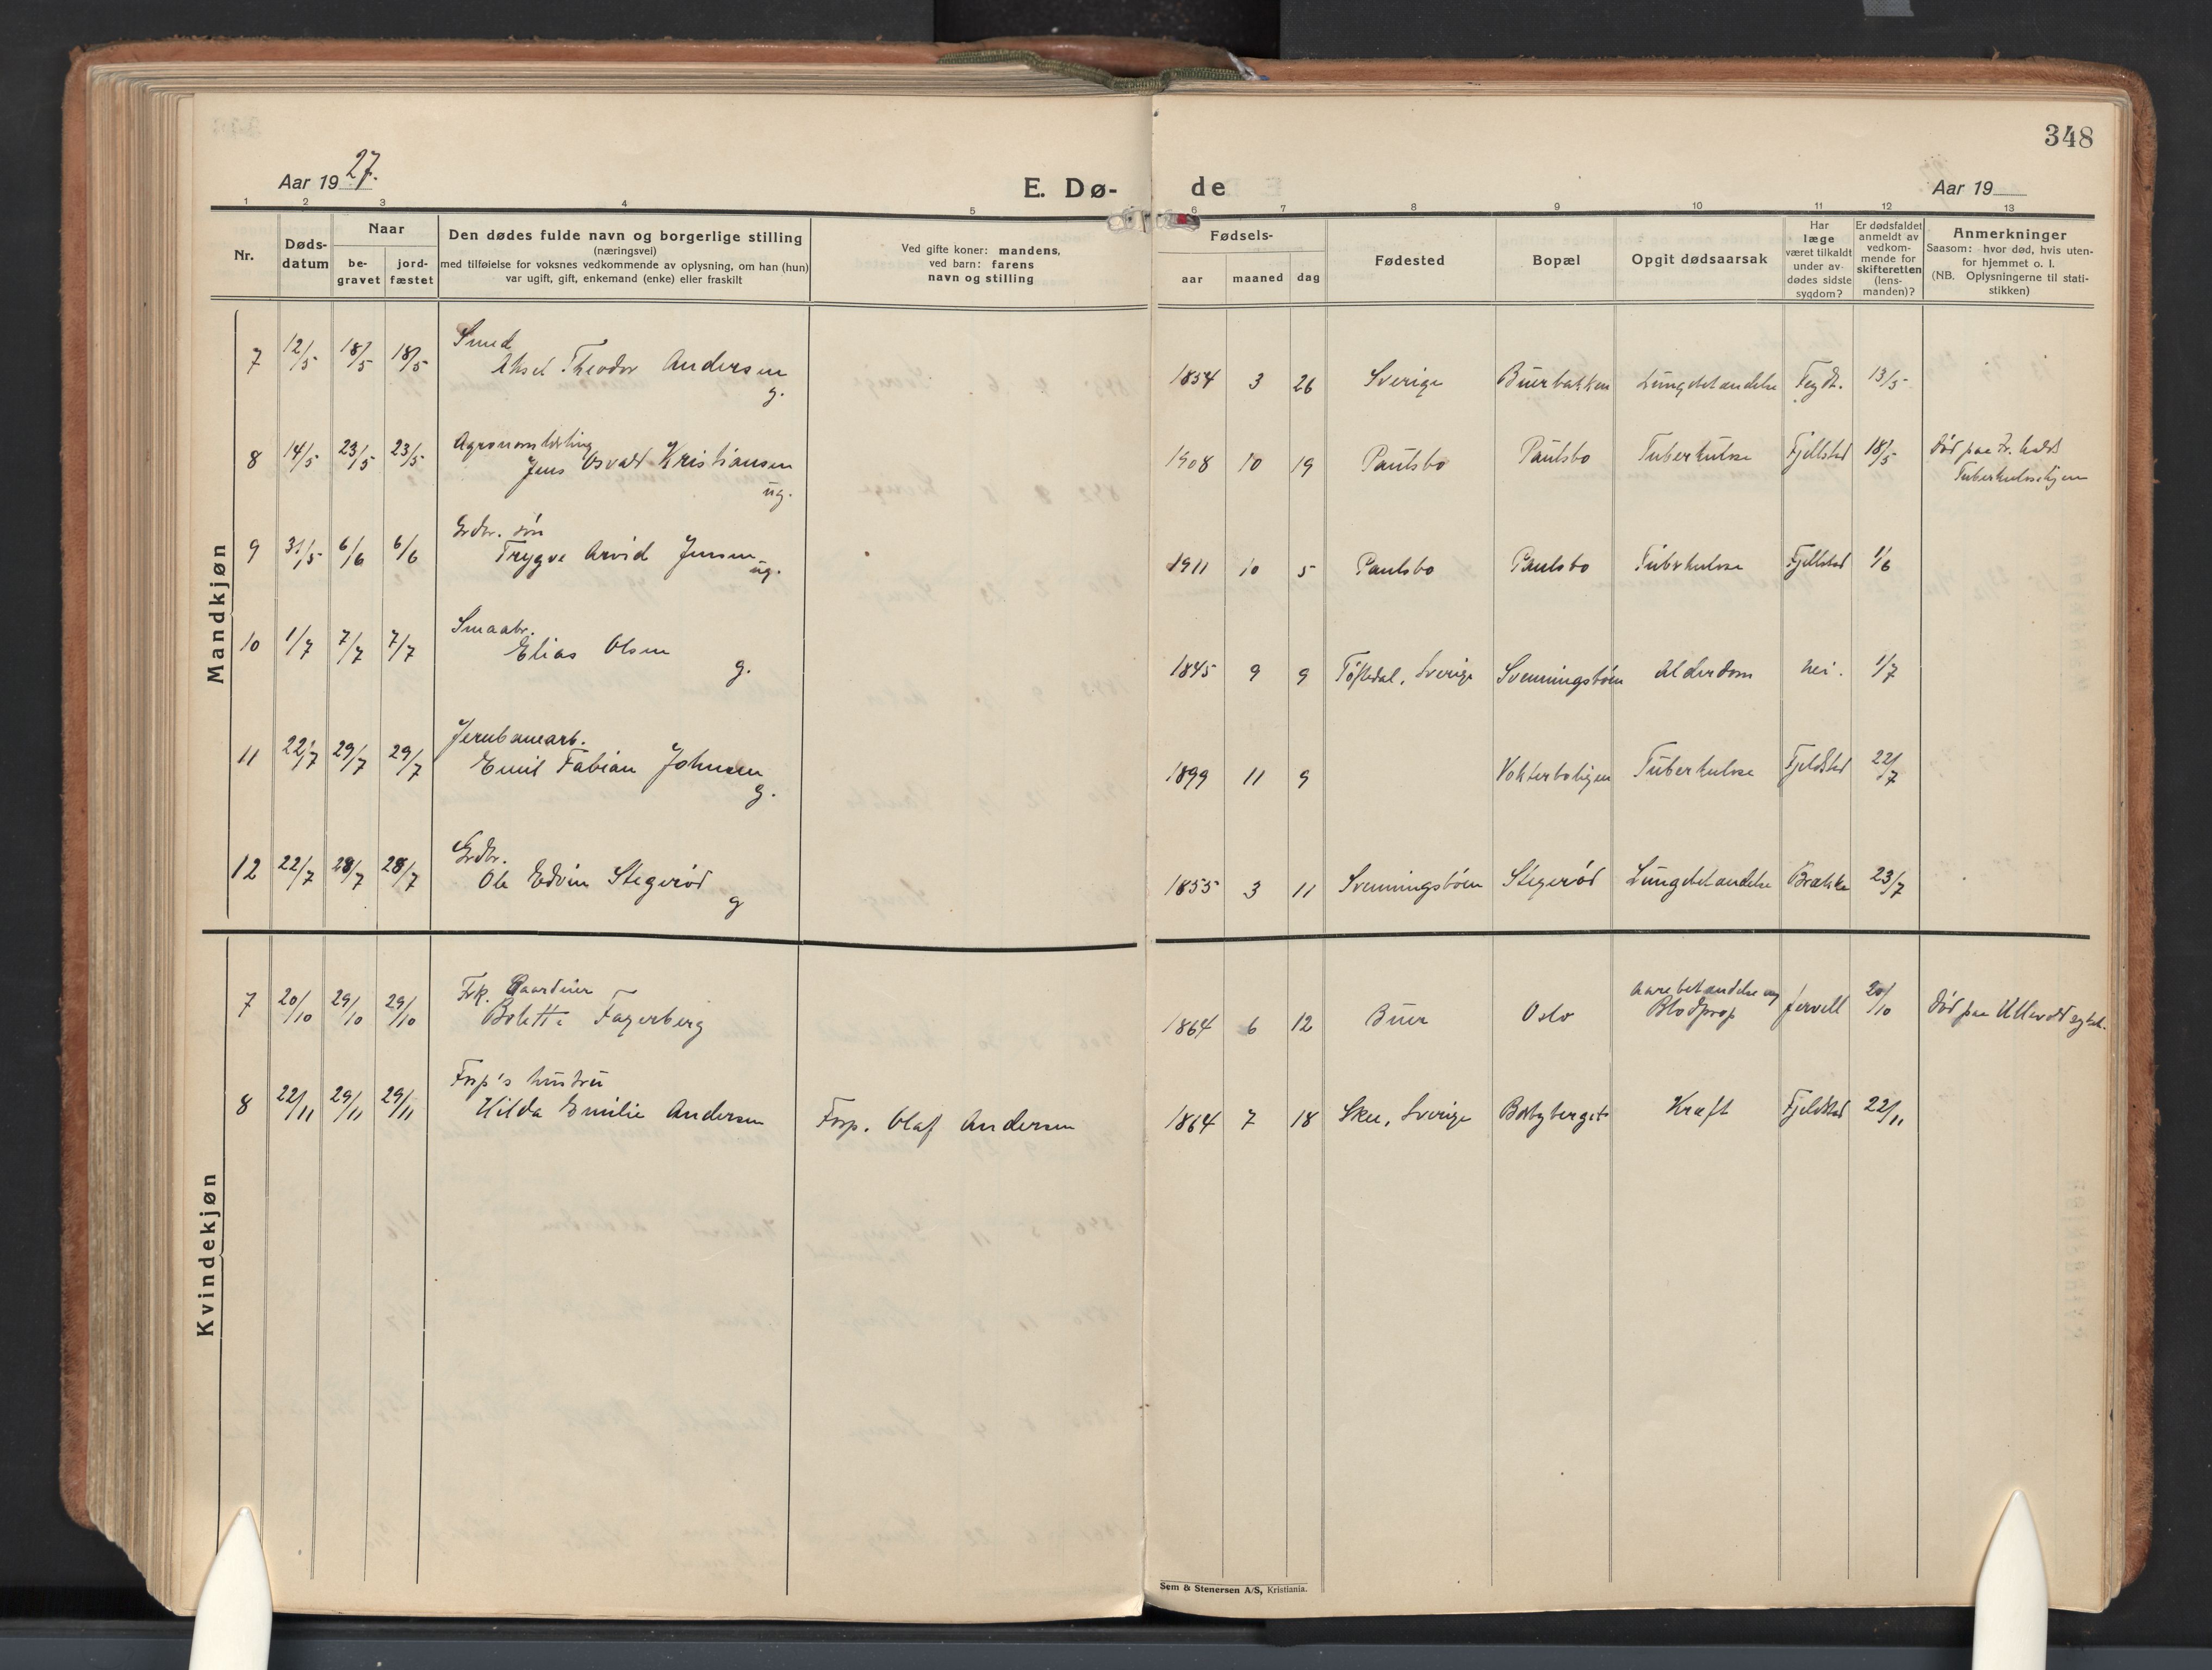 348
Aar 1927.
E. Dø-
de
Aar 19
1 2 3 4 5 6 7 8 9 10 11 12 13
Nr.
Døds-
datum
Naar
be-
gravet
jord-
fæstet
Den dødes fulde navn og borgerlige stilling
(næringsvei)
med tilføielse for voksnes vedkommende av oplysning, om han (hun)
var ugift, gift, enkemand (enke) eller fraskilt
Ved gifte koner: mandens,
ved barn: farens
navn og stilling
Fødsels-
aar maaned dag
Fødested
Bopæl
Opgit dødsaarsak
Har
læge
været tilkaldt
under av-
dødes sidste
sygdom?
Er dødsfaldet
anmeldt av
vedkom-
mende for
skifteretten
(lens-
manden)?
Anmerkninger
Saasom: hvor død, hvis uten-
for hjemmet o. l.
(NB. Oplysningerne til stati-
stikken)
Mandkjøn
Smed
7 12/5 18/5 18/5 Aksel Theodor Andersen
g.
1854 3 26 Sverige Buerbakken Lungebetændelse 13/5
Agronomlærling
8 14/5 23/5 23/5 Jens Osvald Kristiansen
ug.
1908 10 19 Paulsbo Paulsbo Tuberkulose Fjellstad 18/5 Død paa Fr.halds
Tuberkulosehjem
Grdbr. søn
9 31/5 6/6 6/6 Trygve Arvid Jensen
ug.
1911 10 5 Paulsbo Paulsbo Tuberkulose Fjellstad 1/6
Smaabr.
10 1/7 7/7 7/7 Elias Olsen
g.
1845 9 9 Töftedal, Sverige Svenningsbøen Alderdom nei. 1/7
Jernbanearb.
11 22/7 29/7 29/7 Emil Fabian Johnsen
g.
1899 11 9 Vokterboligen Tuberkulose Fjeldstad 22/7
Grdbr.
12 22/7 28/7 28/7 Ole Edvin Stegerød
g
1855 3 11 Svenningsbøen Stegerød Lungebetændelse Brække 23/7
Kvindekjøn
Frk. Gaardeier
7 20/10 29/10 29/10 Boletta Fagerberg
1864 6 12 Buer Oslo Aarebetændelse og
Blodprop Jervell 20/10 Død paa Ullevold sykeh.
Fosp's hustru
8 22/11 29/11 29/11 Hilda Emilie Andersen Fosp. Olaf Andersen
1864 7 18 Skee, Sverige Kræft Fjeldstad 22/11
Sem & Stenersen A/S, Kristiania.